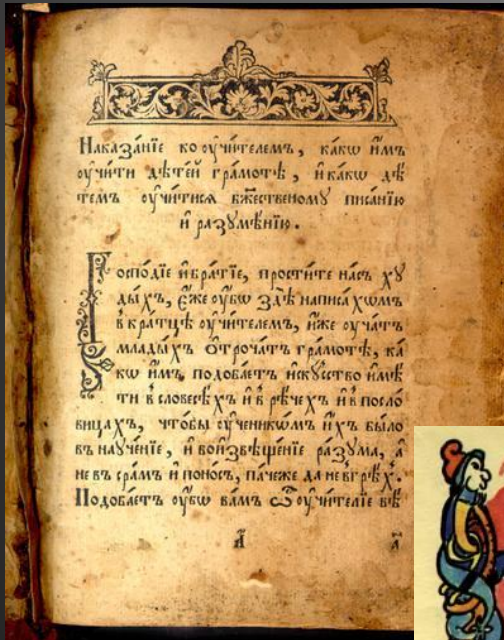 Наказа́нїе ко ᲂу҆чи́телемъ, ка́кѡ и҆̀мъ
ᲂу҆чи́ти дѣте́й гра́мотѣ, и҆ ка́кѡ дѣ́
темъ ᲂу҆чи́тисѧ бж҃е́ственому писа́нїю
и҆ разꙋмѣ́нїю.
Госпо́дїе и҆ бра́тїе, прости́те на́съ хꙋ
ды́хъ, є҆́же ᲂу҆́бѡ здѣ̀ написа́хѡмъ
в кра́тцѣ ᲂу҆чи́телемъ, и҆́же ᲂу҆ча́тъ
млады́хъ ѻ҆троча́тъ гра́мотѣ, ка́
кѡ и҆̀мъ, подоба́етъ и҆скꙋ́сство и҆мѣ́
ти в словесѣ́хъ и҆ в рѣ́чехъ и҆ в посло́
вицахъ, что́бы ᲂу҆ченикѡ́мъ и҆́хъ бы́ло
въ наꙋче́нїе, и҆ во и҆звѣще́нїе ра́зꙋма, а҆
не въ сра́м и҆ поно́съ, па́че же да не в грѣ́х.
Подоба́етъ ᲂу҆́бѡ ва́мъ ѽ ᲂу҆чи́телїе вѣ